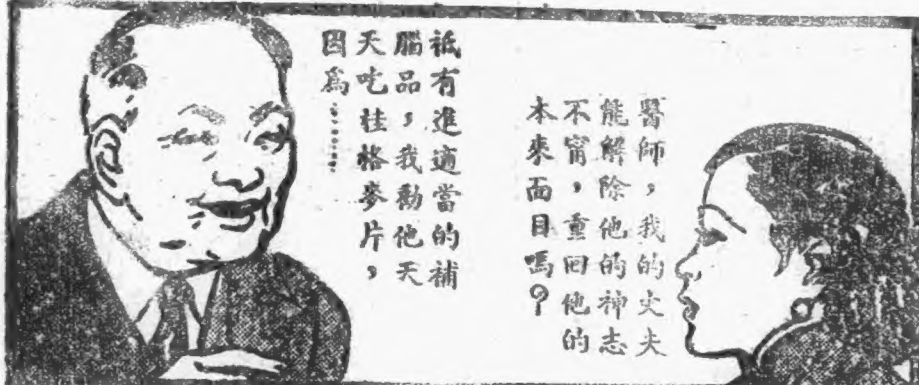 醫師，我的丈夫
能解除他的神志
不甯，重回他的
本來面目嗎？
祗有進適當的補
腦品，我勸他天
天吃桂格麥片，
因爲……